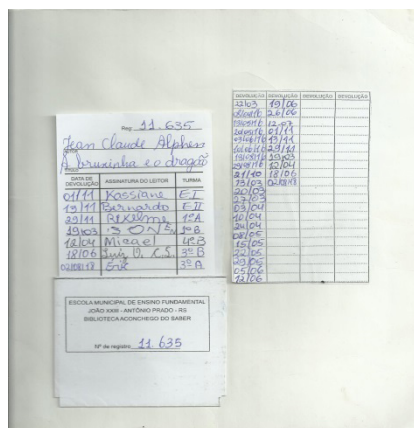 Reg. 11.635
Jean Claude Alphen
AUTOR
A bruxinha e o dragão
TÍTULO
DATA DE DEVOLUÇÃO ASSINATURA DO LEITOR TURMA
01/11 Kassiane EI
13/11 Bernardo EII
29/11 1ºA
19/03 2ºB
12/04 Micael 4ºB
18/06 Luiz V. K.S. 3ºB
02/08/18 Erik 3ºA
ESCOLA MUNICIPAL DE ENSINO FUNDAMENTAL
JOÃO XXIII - ANTÔNIO PRADO - RS
BIBLIOTECA ACONCHEGO DO SABER
Nº de registro 11.635
DEVOLUÇÃO DEVOLUÇÃO DEVOLUÇÃO DEVOLUÇÃO
22/03 19/06
26/06
12/07
01/11
13/11
29/11
19/03
12/04
21/10 18/06
13/03 02/08/18
20/03
27/03
03/04
10/04
24/04
08/05
15/05
22/05
29/05
05/06
12/06